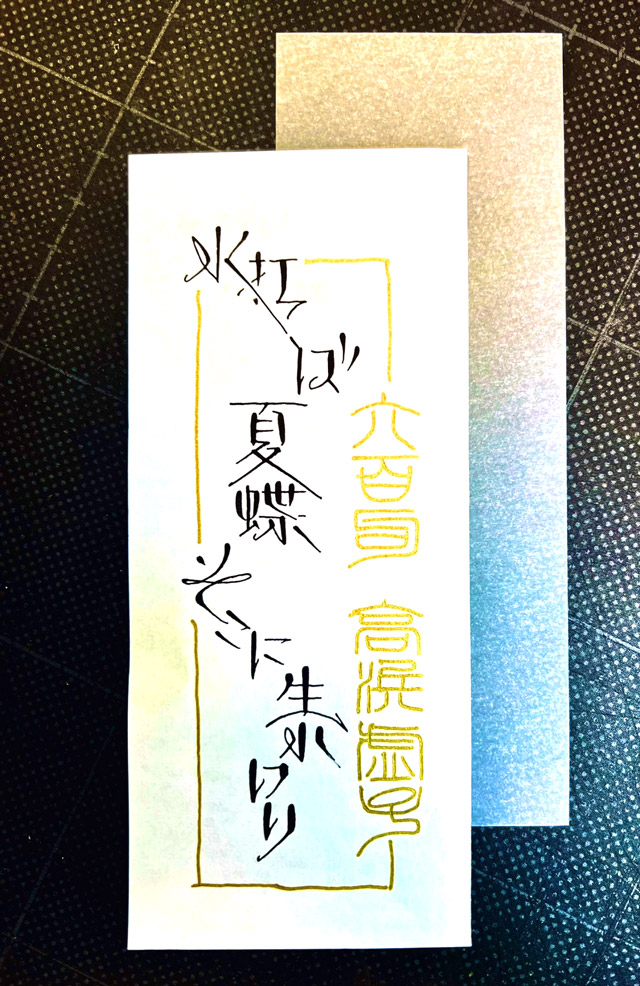 水打てば
夏蝶
そこに
生れけり
六百句 高浜虚子